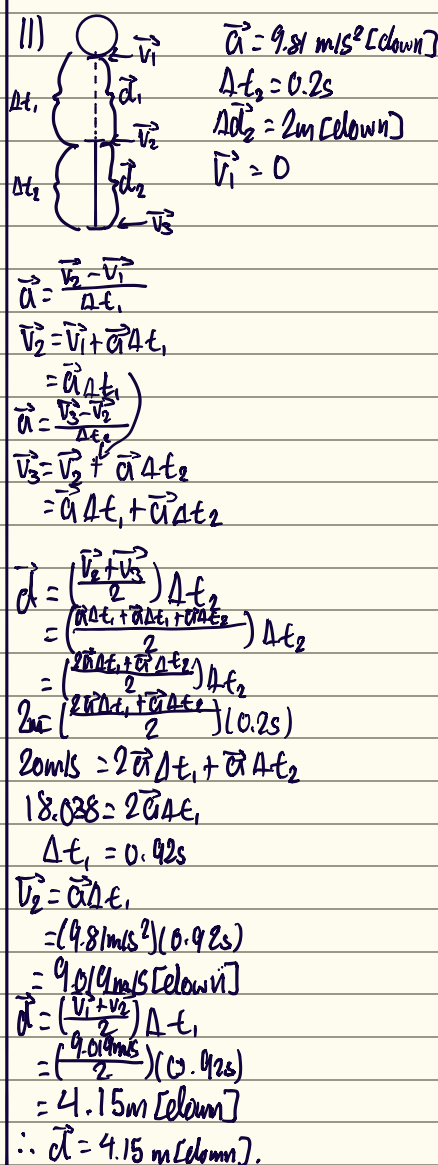 11)
V⃗₁
d⃗₁
Δt₁
V⃗₂
Δt₂
d⃗₂
V⃗₃
a⃗ = 9.81 m/s² [down]
Δt₂ = 0.2s
Δd⃗₂ = 2m [down]
V⃗₁ = 0
a⃗ = (V⃗₂ - V⃗₁)/Δt₁
V⃗₂ = V⃗₁ + a⃗Δt₁
= a⃗Δt₁
a⃗ = (V⃗₃ - V⃗₂)/Δt₂
V⃗₃ = V⃗₂ + a⃗Δt₂
= a⃗Δt₁ + a⃗Δt₂
d⃗ = ((V⃗₂ + V⃗₃)/2) Δt₂
= ((a⃗Δt₁ + a⃗Δt₁ + a⃗Δt₂)/2) Δt₂
= ((2a⃗Δt₁ + a⃗Δt₂)/2) Δt₂
2m = ((2a⃗Δt₁ + a⃗Δt₂)/2)(0.2s)
20m/s = 2a⃗Δt₁ + a⃗Δt₂
18.038 = 2a⃗Δt₁
Δt₁ = 0.92s
V⃗₂ = a⃗Δt₁
= (9.81m/s²)(0.92s)
= 9.019m/s [down]
d⃗ = ((V⃗₁ + V₂)/2) Δt₁
= (9.019m/s/2)(0.92s)
= 4.15m [down]
∴ d⃗ = 4.15 m [down].